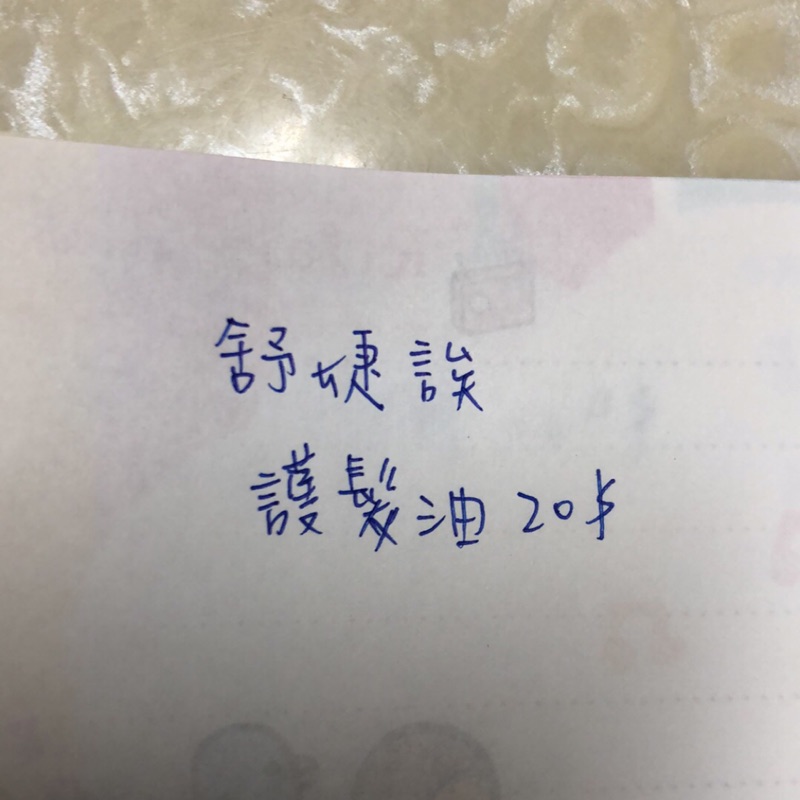 舒婕誒
護髮油 20$